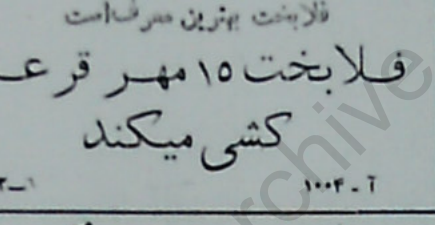 فلابخت بهترین معرف است
فلابخت ۱۵ مهر قرعـ
کشی میکند
آ ـ ۱۰۰۴
rchive